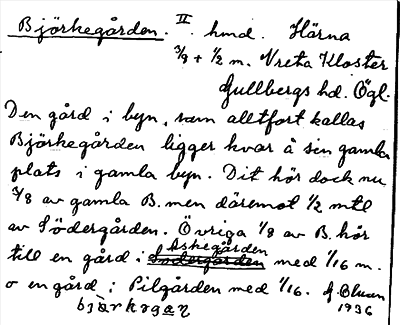 Björkegården. II. hmd. Härna
3/8 + 1/2 m. Vreta Kloster
Gullbergs hd. Ögl.
Den gård i byn, som alltfort kallas
Björkegården ligger kvar å sin gamla
plats i gamla byn. Dit hör dock nu
3/8 av gamla B. men däremot 1/2 mtl
av Södergården. Övriga 1/8 av B. hör
Askegården
till en gård i Södergården med 1/16 m.
o en gård i Pilgården med 1/16.
bjä̀rkogaɳ 1936